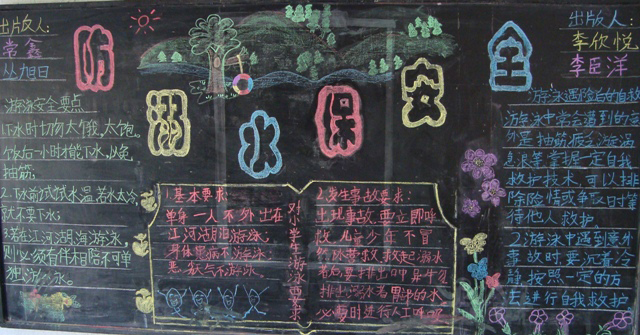 出版人：
常鑫
丛旭日
防溺水保安全
出版人：
李欣悦
李臣洋
游泳安全要点
1.下水时切勿太饿，太饱，
饭后一小时才能下水，以免
抽筋；
2.下水前试试水温，若水太冷，
就不要下水；
3.若在江河湖海游泳，
则必须有伴相陪不可单
独游泳。
对小学生游泳要求
1.基本要求：
单身一人不外出在
江河湖泊游泳，
身体患病不游泳；
恶劣天气不游泳。
2.发生事故要求：
出现事故，要立即呼
救，儿童少年不冒
险
救起溺水
者后，要排出口中
排
溺水者胃肺的水
必要时进行人工呼吸
游泳遇险后的自救
游泳中常会遇到的意
外是抽筋
掌握一定自我
救护技术，可以排
除险情或争取时间
待他人救护。
2.游泳中遇到意外
事故时要沉着冷
静，按照一定的方
法进行自我救护